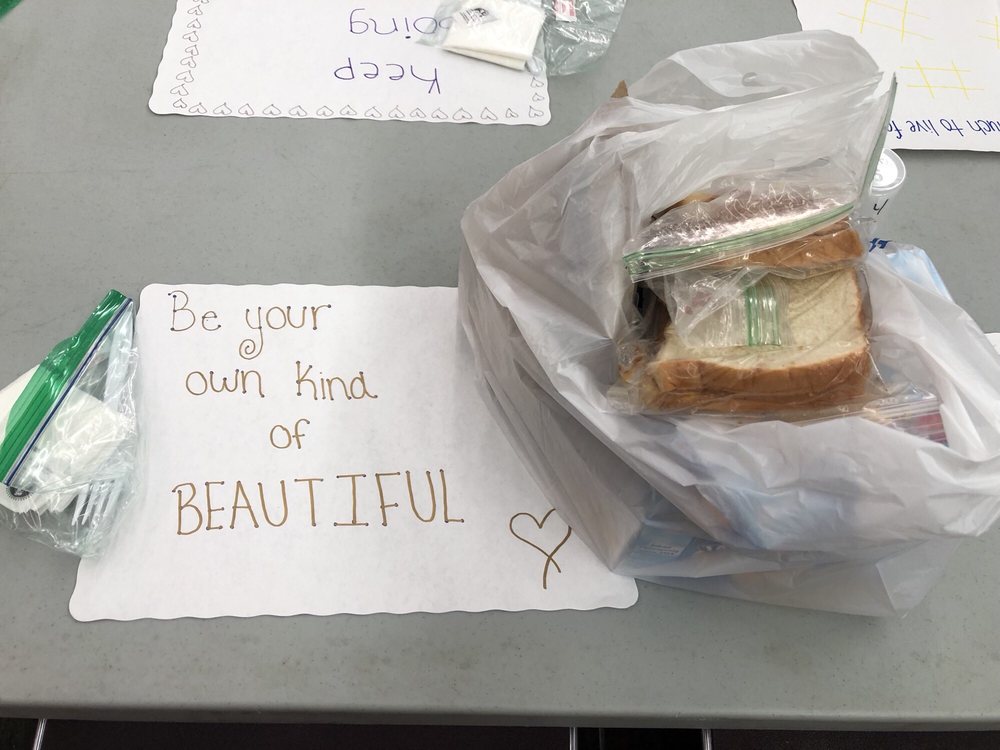 Be your
own kind
of
BEAUTIFUL
keep
to live
4